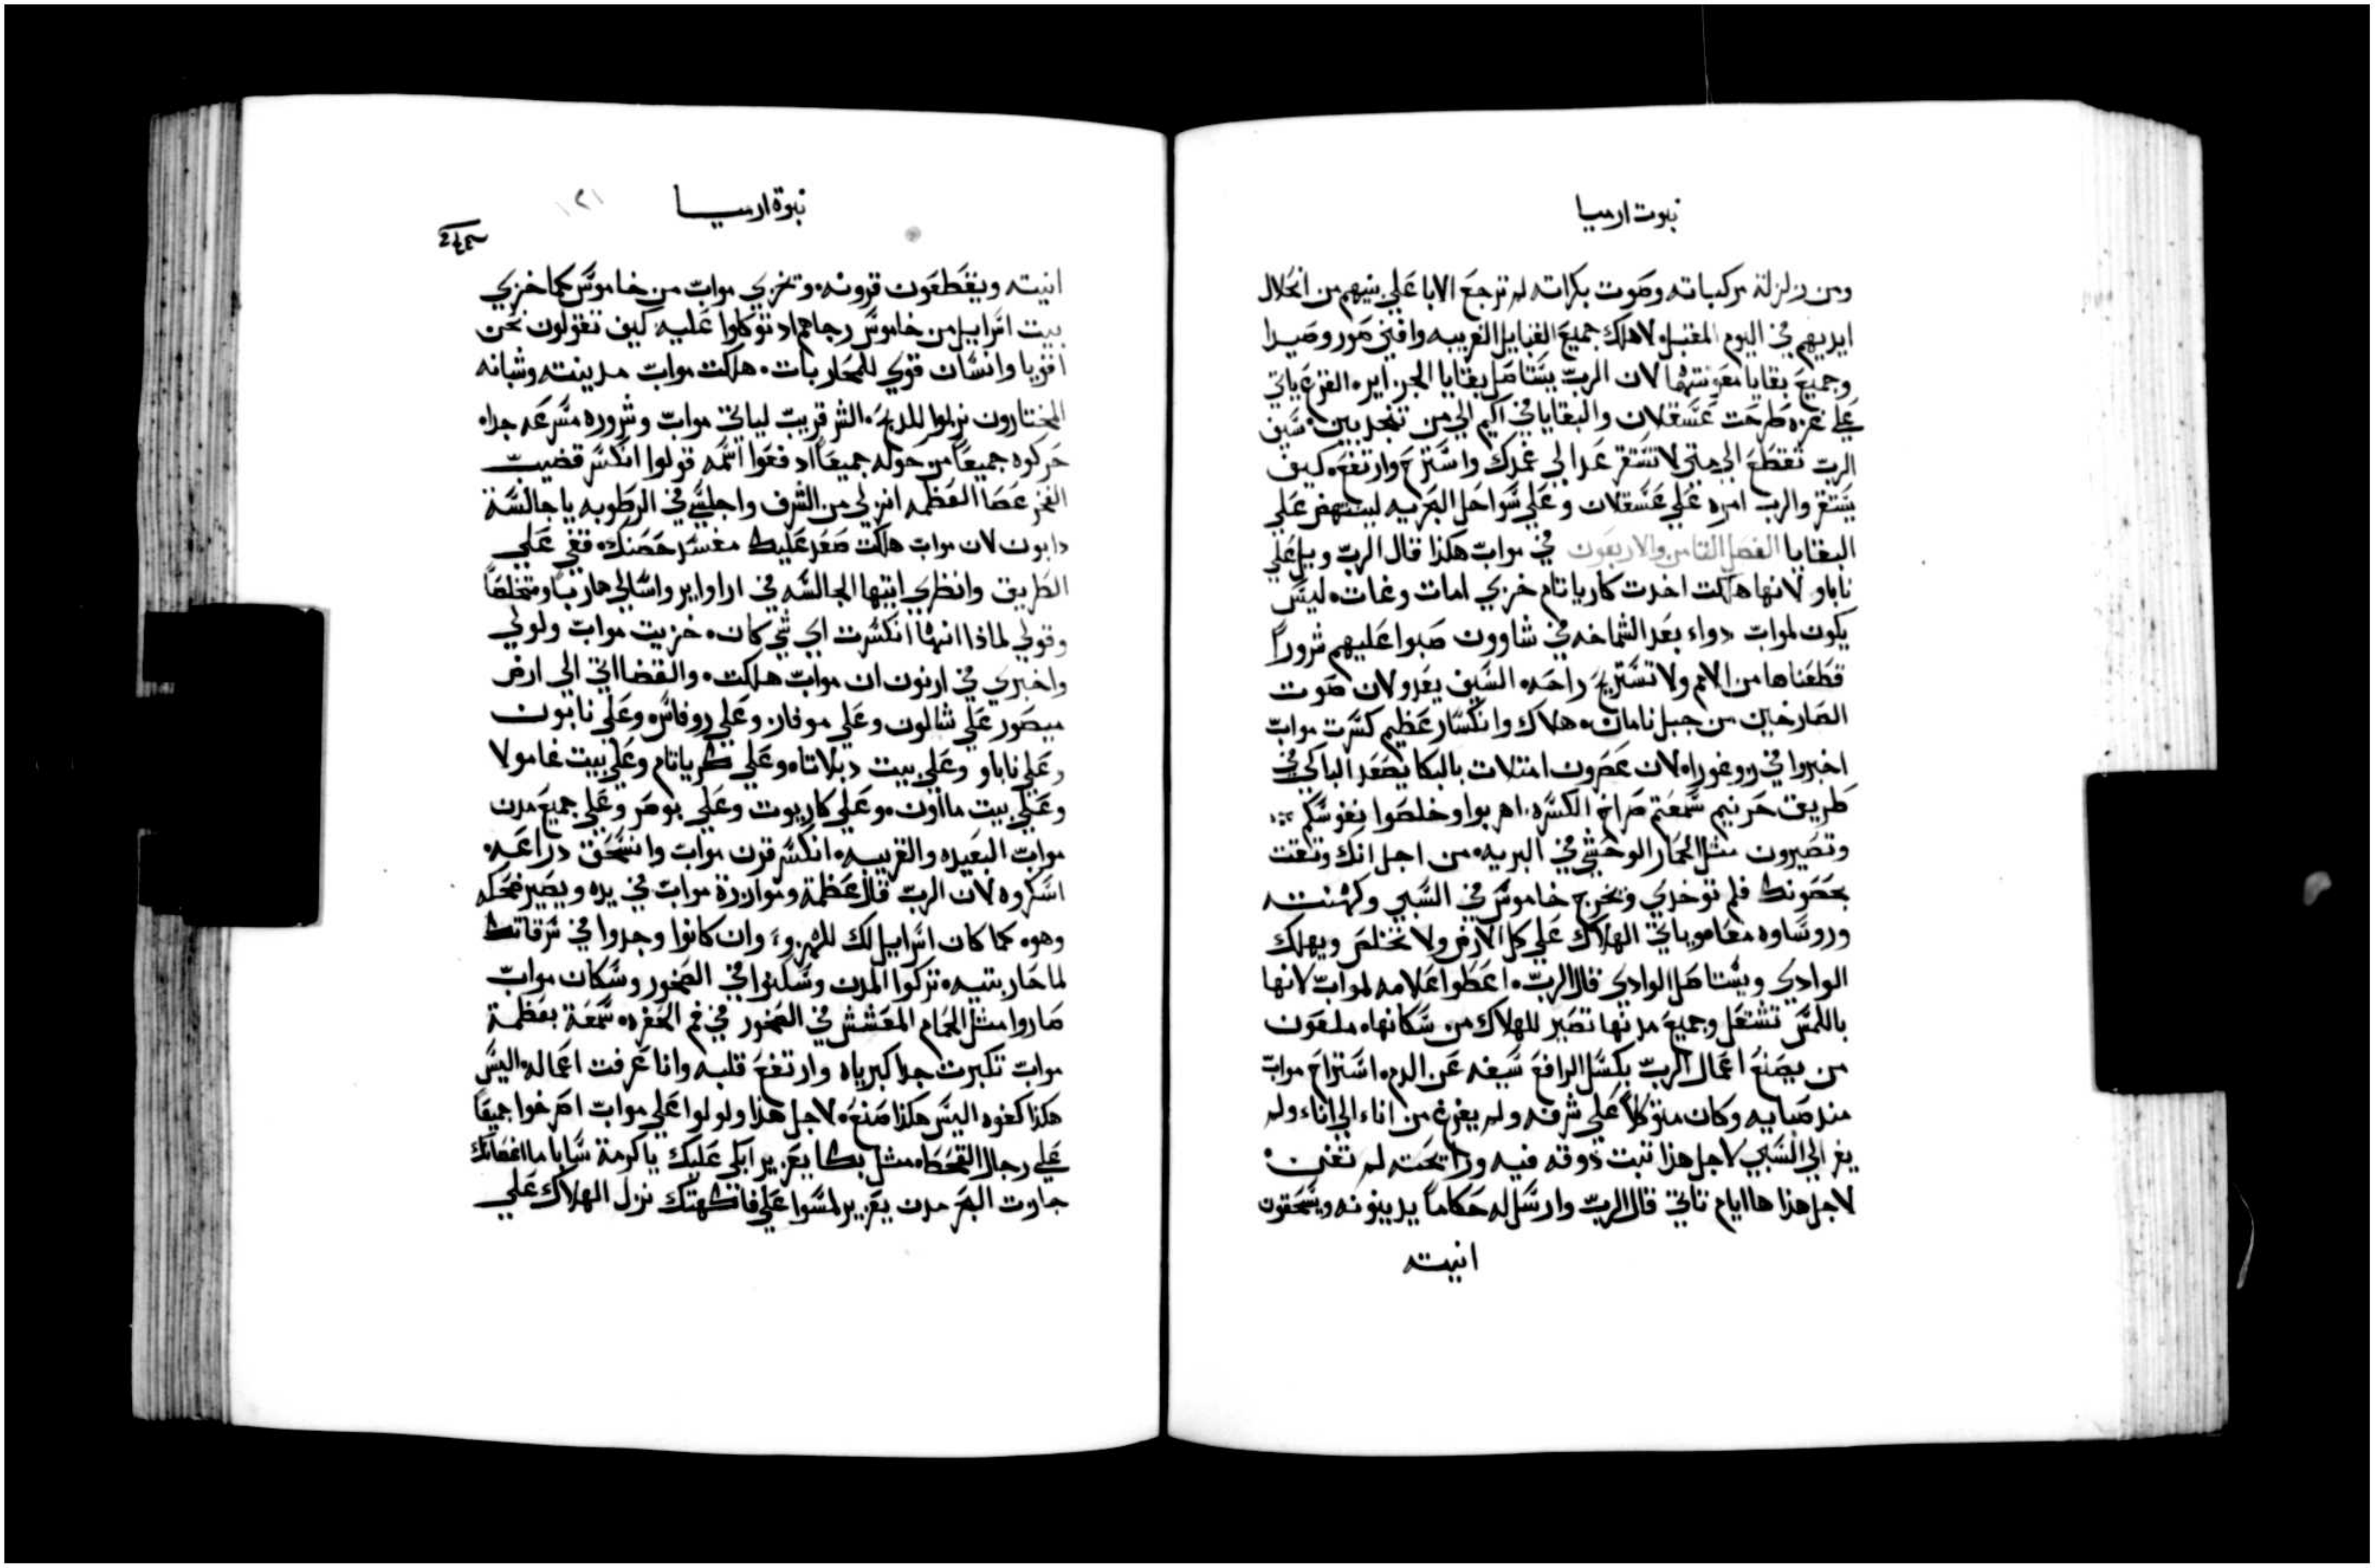 نبوت ارميا
ومن زلزلة مركباته وصوت بكراته لم ترجع الابا علي بنيهم من انحلال
ايديهم في اليوم المقبل لاهلاك جميع القبايل الغريبه وافني صور وصيدا
وجميع بقايا معونتهما لان الرب يستاصل بقايا الجزاير الفزع ياتي
علي غزه طرحت عسقلان والبقايا في اكيم الي متي تنجدبين سيف
الرب تقطع الي متي لا تستقر عد الي غمدك واستريح وارتفع كيف
يستقر والرب امره علي عسقلان وعلي سواحل البحريه لينتهض علي
البقايا الفصل الثامن والاربعون في مواب هكذا قال الرب ويل علي
ناباو لانها هلكت اخدت كارياتام خزي امات وغات ليس
يكون لمواب دواء بعد الشماخه في شاوون صبوا عليهم شروراً
قطعناها من الامم ولا تستريح راحه السيف يغدو لان صوت
الصارخين من جبل نامان هلاك وانكسار عظيم كسرت مواب
اخبروا في زوغورا لان عصرون امتلات بالبكا يصعد الباكي في
طريق حرنيم سمعتم صراخ الكسره اهربوا وخلصوا نفوسكم
وتصيرون مثل الحمار الوحشي في البريه من اجل انك وتقت
بحصونك فلم توخدي ويخرج خاموس في السبي وكهنته
وروساوه معا هو ياتي الهلاك علي كل الارض ولا تخلص ويهلك
الوادي ويستاصل الوادي قال الرب اعطوا علامه لمواب لانها
باللمس تشتعل وجميع مدنها تصير للهلاك من سكانها ملعون
من يصنع اعمال الرب بكسل الرافع سيفه عن الدم استراح مواب
مند صبايه وكان متوكلاً علي شرفه ولم يفرغ من اناء الي اناء ولم
يغر الي السبي لاجل هذا تبت ذوقه فيه ورايحته لم تفني
لاجل هذا ها ايام تاتي قال الرب وارسل له حكاماً يدينونه ويسحقون
انيته
نبوة ارميا
١٢١
انيته ويقطعون قرونه وتخزي مواب من خاموس كما خزي
بيت اسراييل من خاموس رجاهم اد توكلوا عليه كيف تقولون نحن
اقويا وانسان قوي للمحاربات هلكت مواب مدينته وشبانه
المختارون نزلوا للدبح الشر قريب لياتي مواب وشروره مسرعه جدا
حركوه جميعاً من حوله جميعاً ادفعوا اسمه قولوا انكسر قضيب
الفخر عصا العظمه انزلي من الشرف واجلسي في الرطوبه يا جالسة
دابون لان مواب هلكت صعد عليك مفسد حصنك قفي علي
الطريق وانظري ايتها الجالسه في اراواير واسالي هارباً ومتخلصاً
وقولي لماذا انها انكسرت اي شي كان خزيت مواب ولولي
واخبري في ارنون ان مواب هلكت والقضا اتي الي ارض
ميصور علي شالون وعلي موفاز وعلي روفاس وعلي نابون
وعلي ناباو وعلي بيت دبلاتا وعلي كرياتام وعلي بيت غامولا
وعلي بيت مااون وعلي كاريوت وعلي بوصر وعلي جميع مدن
مواب البعيده والقريبه انكسر قرن مواب وانسحق دراعه
اسكروه لان الرب قال عظمة وموازرة مواب في يده ويصير ضحكه
وهوه كما كان اسراييل لك للهزو وان كانوا وجدوا في سرقاتك
لما حاربتيه تركوا المدن وسكنوا في الصخور وسكان مواب
صاروا مثل الحمام المعشش في الصخور في فم الحفره سمعة بعظمة
مواب تكبرت جدا كبرياه وارتفع قلبه وانا عرفت اعماله اليس
هكذا كفوه اليس هكذا صنع لاجل هذا ولولوا علي مواب اصرخوا جميعاً
علي رجال القحط مثل بكا يعزير ابكي عليك يا كرمة سابا ما اغصانك
جازت البحر مدن يعزير لمسوا علي فاكهتك نزل الهلاك علي